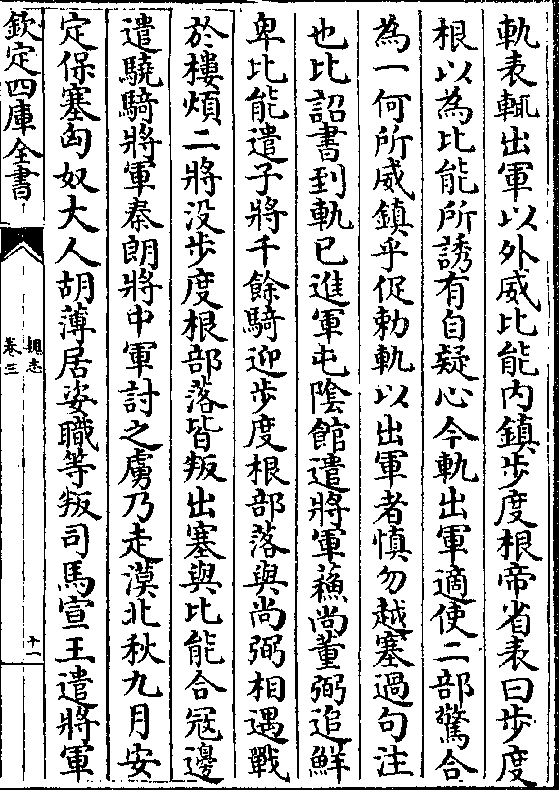 軌表輒出軍以外威比能内鎮步度根帝省表曰步度
根以為比能所誘有自疑心今軌出軍適使二部驚合
為一何所威鎮乎促勅軌以出軍者慎勿越塞過句注
也比詔書到軌已進軍屯陰館遣將軍蘓尚董弼追鮮
卑比能遣子將千餘騎迎步度根部落與尚弼相遇戰
於樓煩二將没步度根部落皆叛出塞與比能合冦邊
遣驍騎將軍秦朗將中軍討之虜乃走漠北秋九月安
定保塞匈奴大人胡薄居姿職等叛司馬宣王遣將軍
欽定四庫全書
魏志
卷三
十一